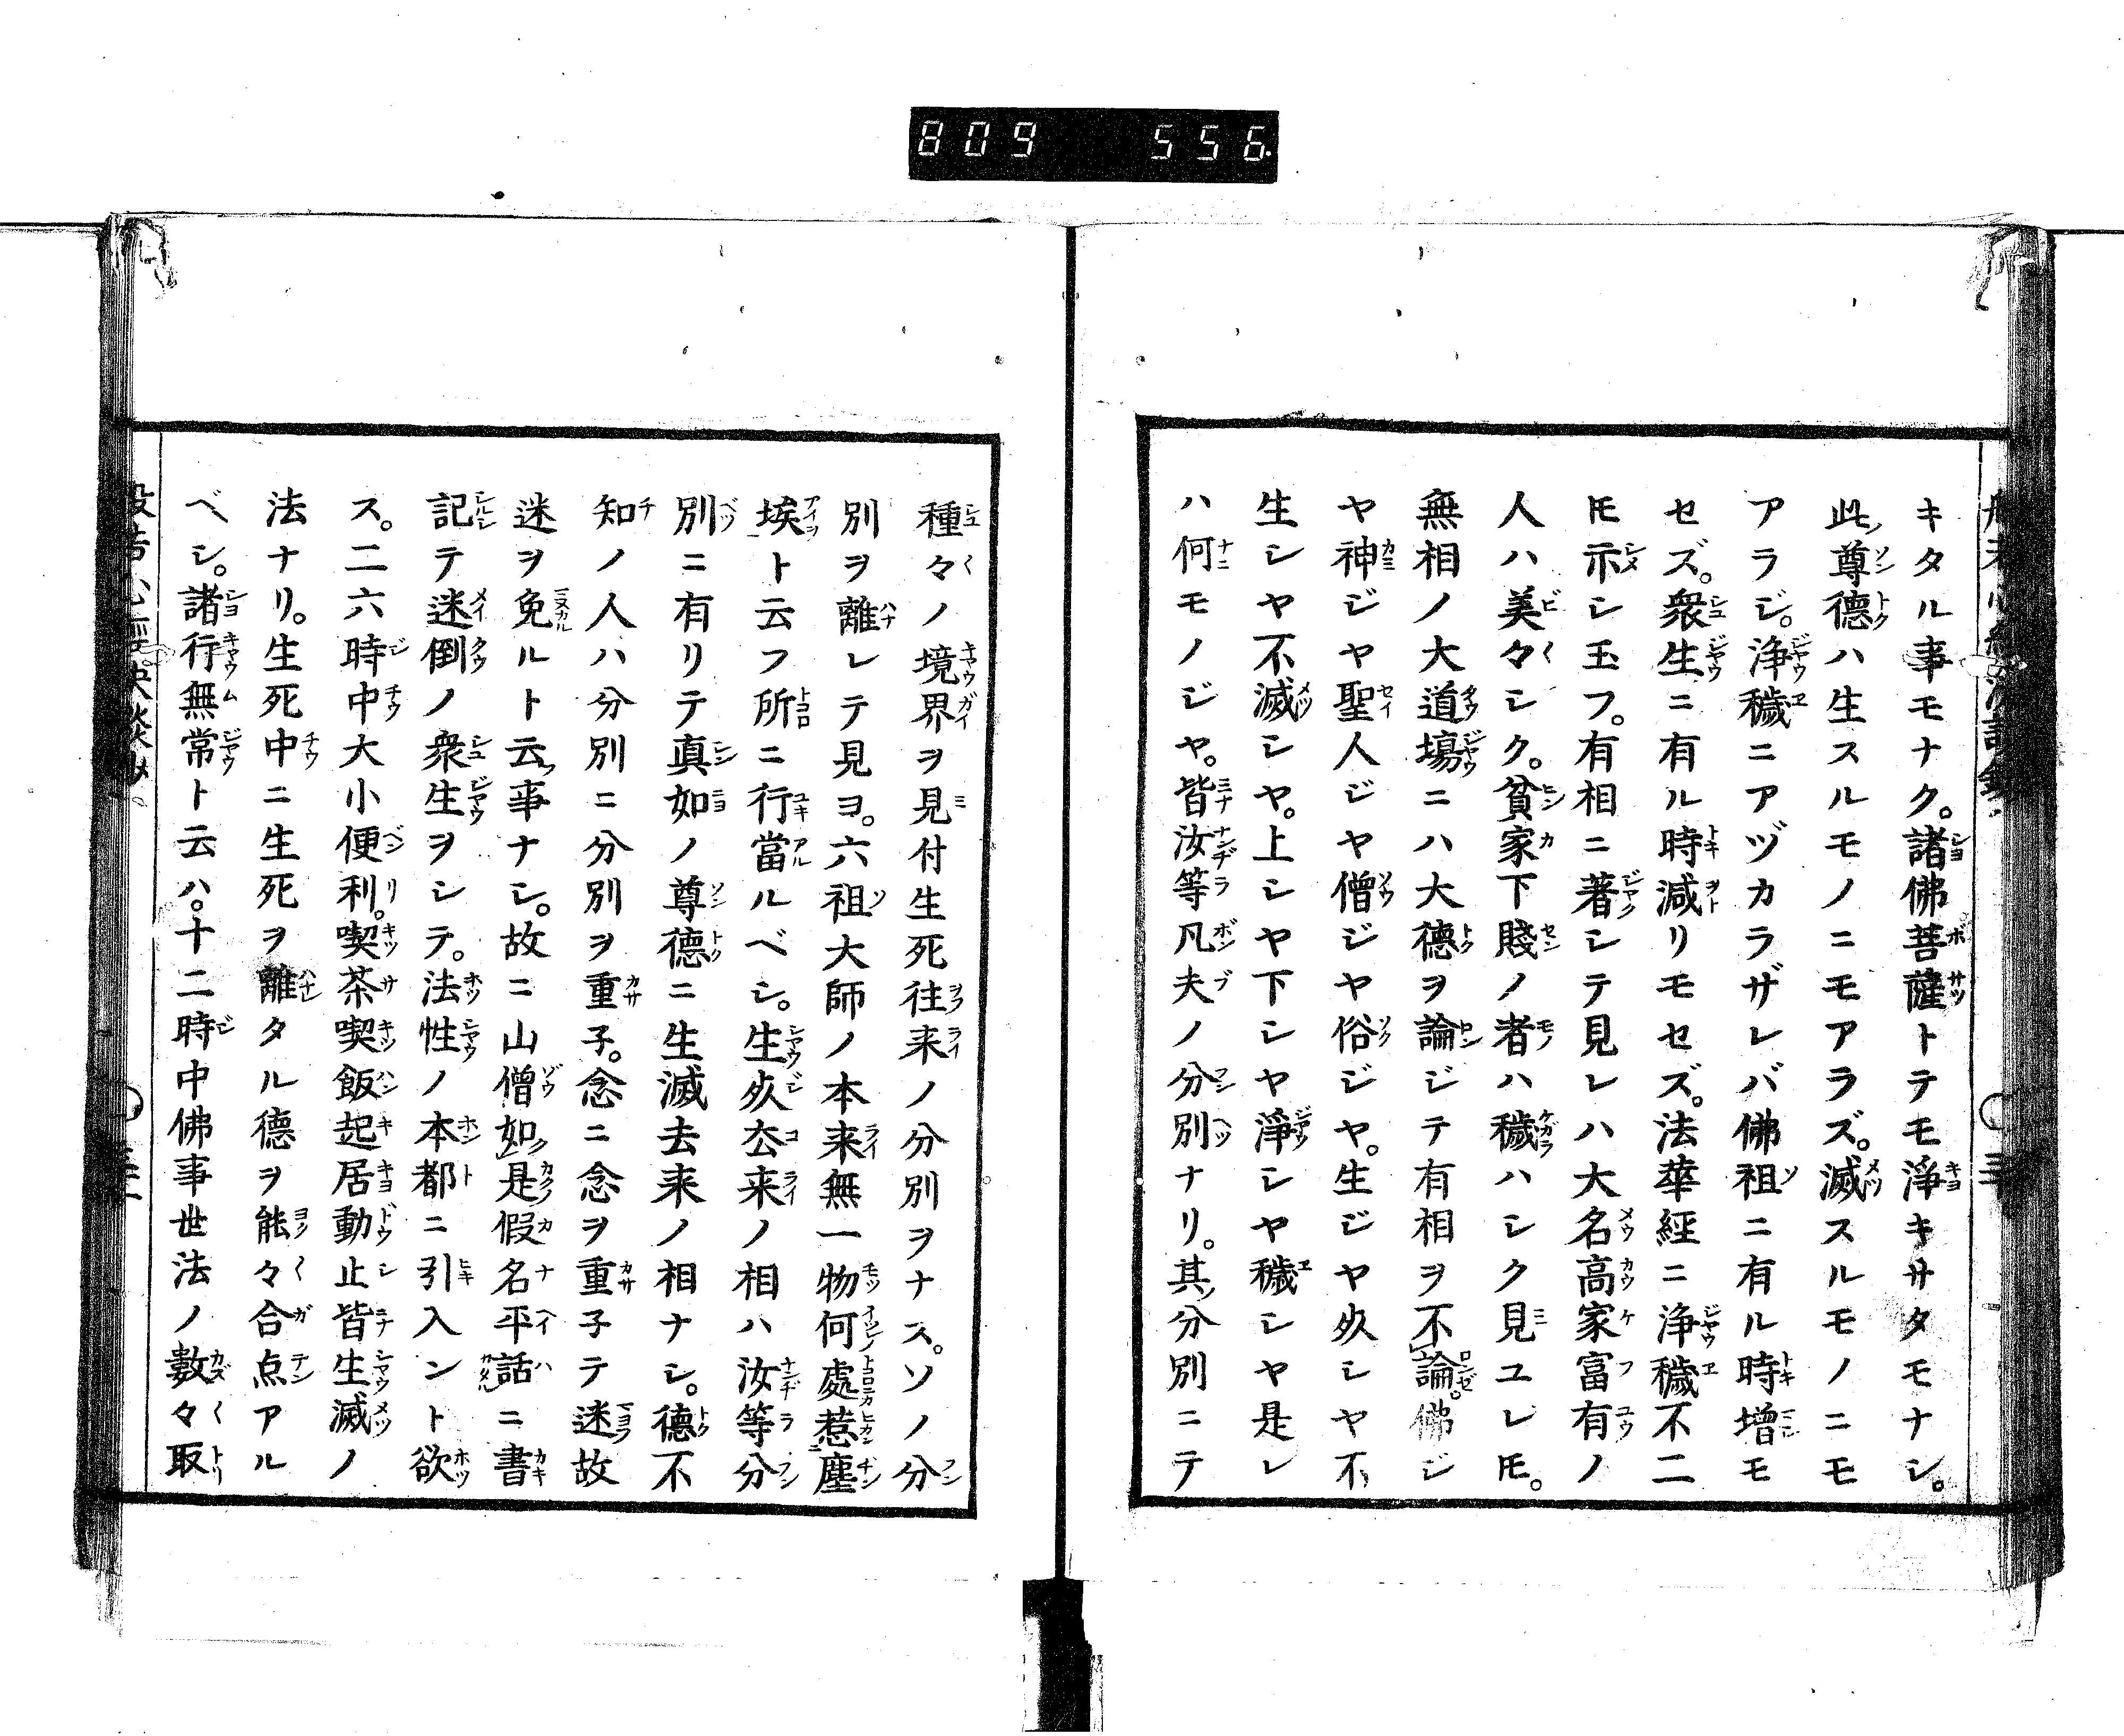 809 556
キタル事モナク。諸佛菩薩トテモ淨キサタモナシ。
此ノ尊德ハ生スルモノニモアラズ。滅スルモノニモ
アラジ。浄穢ニアヅカラザレバ佛祖ニ有ル時増モ
セズ。衆生ニ有ル時減リモセズ。法華経ニ浄穢不二
𪜈示シ玉フ。有相ニ著シテ見レハ大名高家富有ノ
人ハ美々シク。貧家下賤ノ者ハ穢ハシク見ユレ𪜈。
無相ノ大道場ニハ大德ヲ論ジテ有相ヲ不論。佛ジ
ヤ神ジヤ聖人ジヤ僧ジヤ俗ジヤ。生ジヤ死シヤ不
生シヤ不滅シヤ。上シヤ下シヤ淨シヤ穢シヤ是レ
ハ何モノジヤ。皆汝等凡夫ノ分別ナリ。其ノ分別ニテ
種々ノ境界ヲ見付生死往来ノ分別ヲナス。ソノ分
別ヲ離レテ見ヨ。六祖大師ノ本来無一物何處惹塵
埃ト云フ所ニ行當ルベシ。生死去来ノ相ハ汝等分
別ニ有リテ真如ノ尊德ニ生滅去来ノ相ナシ。德不
知ノ人ハ分別ニ分別ヲ重子。念ニ念ヲ重子テ迷故
迷ヲ免ルト云フ事ナシ。故ニ山僧如是假名平話ニ書
記テ迷倒ノ衆生ヲシテ。法性ノ本都ニ引入ント欲
ス。二六時中大小便利。喫茶喫飯起居動止皆生滅ノ
法ナリ。生死中ニ生死ヲ離タル德ヲ能々合点アル
ベシ。諸行無常ト云ハ。十二時中佛事世法ノ數々取